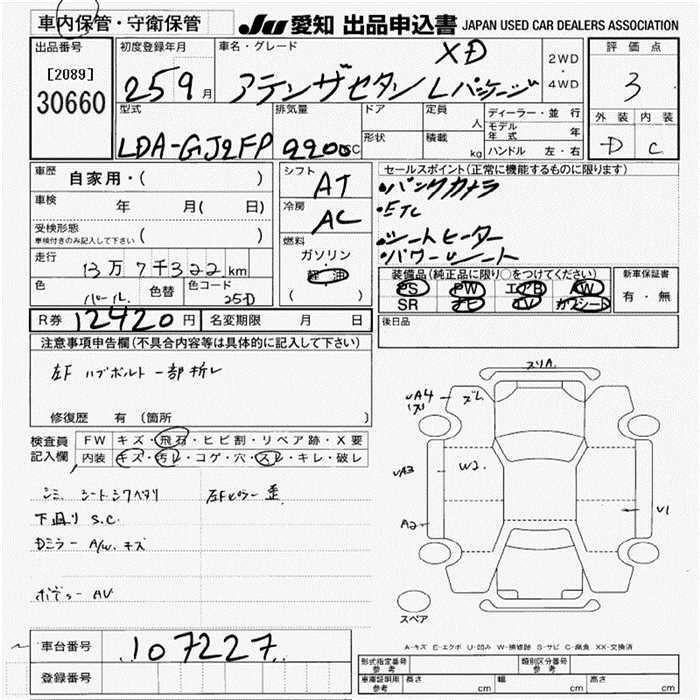 車内保管・守衛保管
JU 愛知 出品申込書 JAPAN USED CAR DEALERS ASSOCIATION
出品番号
[2089]
30660
初度登録年月
25 9月
車名・グレード
XD
アテンザセダン Lパッケージ
2WD
・
4WD
評価点
3
外装 内装
D C
型式
LDA-GJ2FP
排気量
2200cc
ドア
形状
定員
人
積載
kg
ディーラー・並行
モデル年式 年
ハンドル 左・右
車歴
自家用・( )
車検
年 月( 日)
受検形態
車検付きのみ記入して下さい ( )
走行
13万7千322km
色
パール
色替
色コード
25D
シフト
AT
冷房
AC
燃料
ガソリン
軽油
( )
セールスポイント(正常に機能するものに限ります)
・バックカメラ
・ETC
・シートヒーター
・パワーシート
装備品(純正品に限り○をつけてください)
PS PW エアB AW
SR ナビ TV カワシート
新車保証書
有・無
後日品
R券 12420円
名変期限 月 日
注意事項申告欄(不具合内容等は具体的に記入して下さい)
左F ハブボルト 一部折レ
修復歴 有 (箇所 )
検査員記入欄
FW キズ・飛石・ヒビ割・リペア跡・X要
内装 キズ・汚レ・コゲ・穴・スレ・キレ・破レ
シミ シートシワヘタリ 左Fピラー 歪
下廻り S.C.
Dミラー A/W キズ
ボデー AU
スリA
UA4
ズレ
UA3
W2
A2
U1
スペア
A-キズ E-エクボ U-凹み W-補修跡 S-サビ C-腐食 XX-交換済
車台番号
107227
登録番号
型式指定番号 参考
類別区分番号 参考
車庫証明用 参考
長さ cm
巾 cm
高さ cm